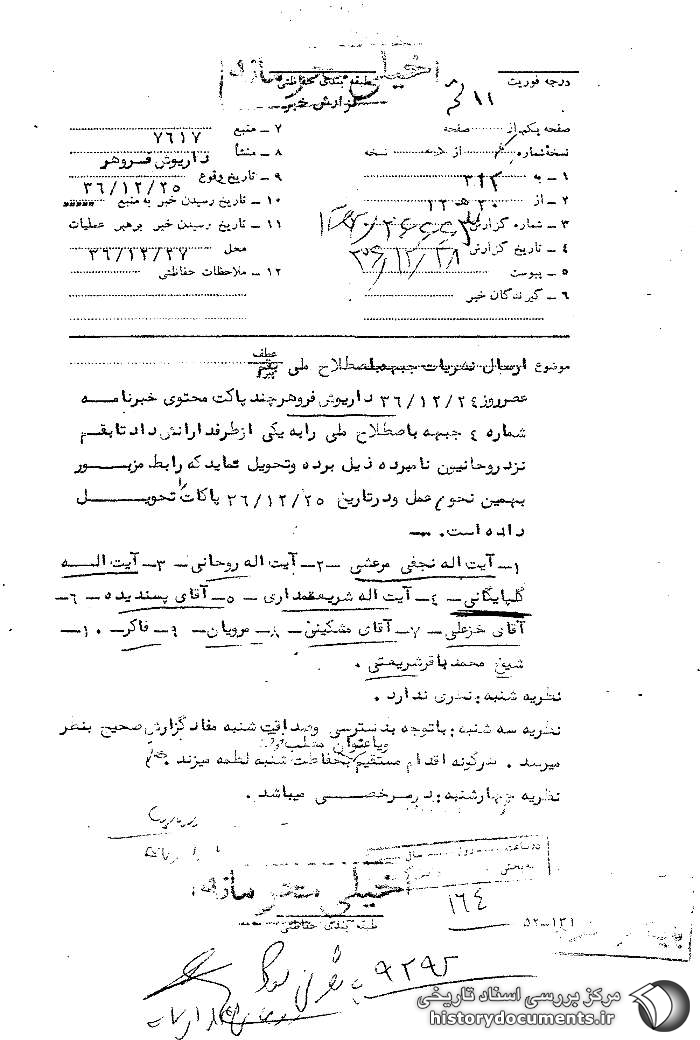 خیلی محرمانه
درجه فوریت
طبقه بندی حفاظتی
گزارش خبر
صفحه یکم از صفحه
نسخه شماره از نسخه
۱ ـ به ۳۱۲
۲ ـ از ۲۰ هـ ۱۲
۳ ـ شماره گزارش
۴ ـ تاریخ گزارش
۵ ـ پیوست
۶ ـ گیرندگان خبر
۷ ـ منبع ۷۶۱۷
۸ ـ منشأ داریوش فروهر
۹ ـ تاریخ وقوع ۳۶/۱۲/۲۵
۱۰ ـ تاریخ رسیدن خبر به منبع
۱۱ ـ تاریخ رسیدن خبر برهبر عملیات
محل ۳۶/۱۲/۲۷
۱۲ ـ ملاحظات حفاظتی
موضوع ارسال نشریات جبهه باصطلاح ملی بقم
عطف
عصرروز ۳۶/۱۲/۲۴ داریوش فروهر چند پاکت محتوی خبرنامه
شماره ۴ جبهه باصطلاح ملی رابه یکی ازطرفدارانش داد تا بقم
نزد روحانیین نامبرده ذیل برده وتحویل نماید که رابط مزبور
بهمین نحو عمل ودرتاریخ ۳۶/۱۲/۲۵ پاکات را تحویل
داده است.
۱ـ آیت اله نجفی مرعشی ـ ۲ـ آیت اله روحانی ـ ۳ـ آیت اله
گلپایگانی ـ ۴ـ آیت اله شریعتمداری ـ ۵ـ آقای پسندیده ـ ۶ـ
آقای خزعلی ـ ۷ـ آقای مشکینی ـ ۸ـ مرویان ـ ۹ـ فاکر ـ ۱۰ـ
شیخ محمد باقرشریعتی .
نظریه شنبه : نظری ندارد .
نظریه سه شنبه : باتوجه بدسترسی وصداقت شنبه مفاد گزارش صحیح بنظر
میرسد . هرگونه اقدام مستقیم ویا عنوان مطلب بحفاظت شنبه لطمه میزند .
نظریه چهارشنبه : درمرخصی میباشد .
خیلی محرمانه
طبقه بندی حفاظتی
۱۶۴
۵۲-۱۳۱
مرکز بررسی اسناد تاریخی
historydocuments.ir